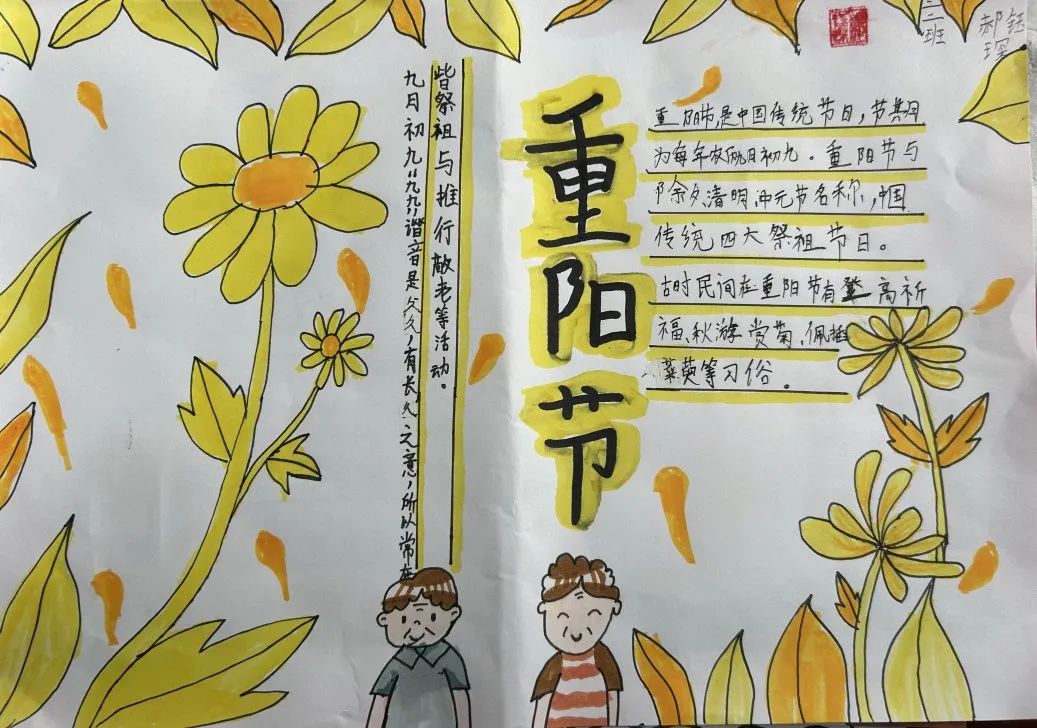 重阳节
重阳节,是中国传统节日,节期
为每年农历九月初九。重阳节与
除夕、清明、中元节名称,中国
传统四大祭祖节日。
古时民间在重阳节有登高祈
福、秋游赏菊、佩插
茱萸等习俗。
九月初九“九九”谐音是久久,有长久之意,所以常在
此日祭祖与推行敬老等活动。
二班
郝钰
琛